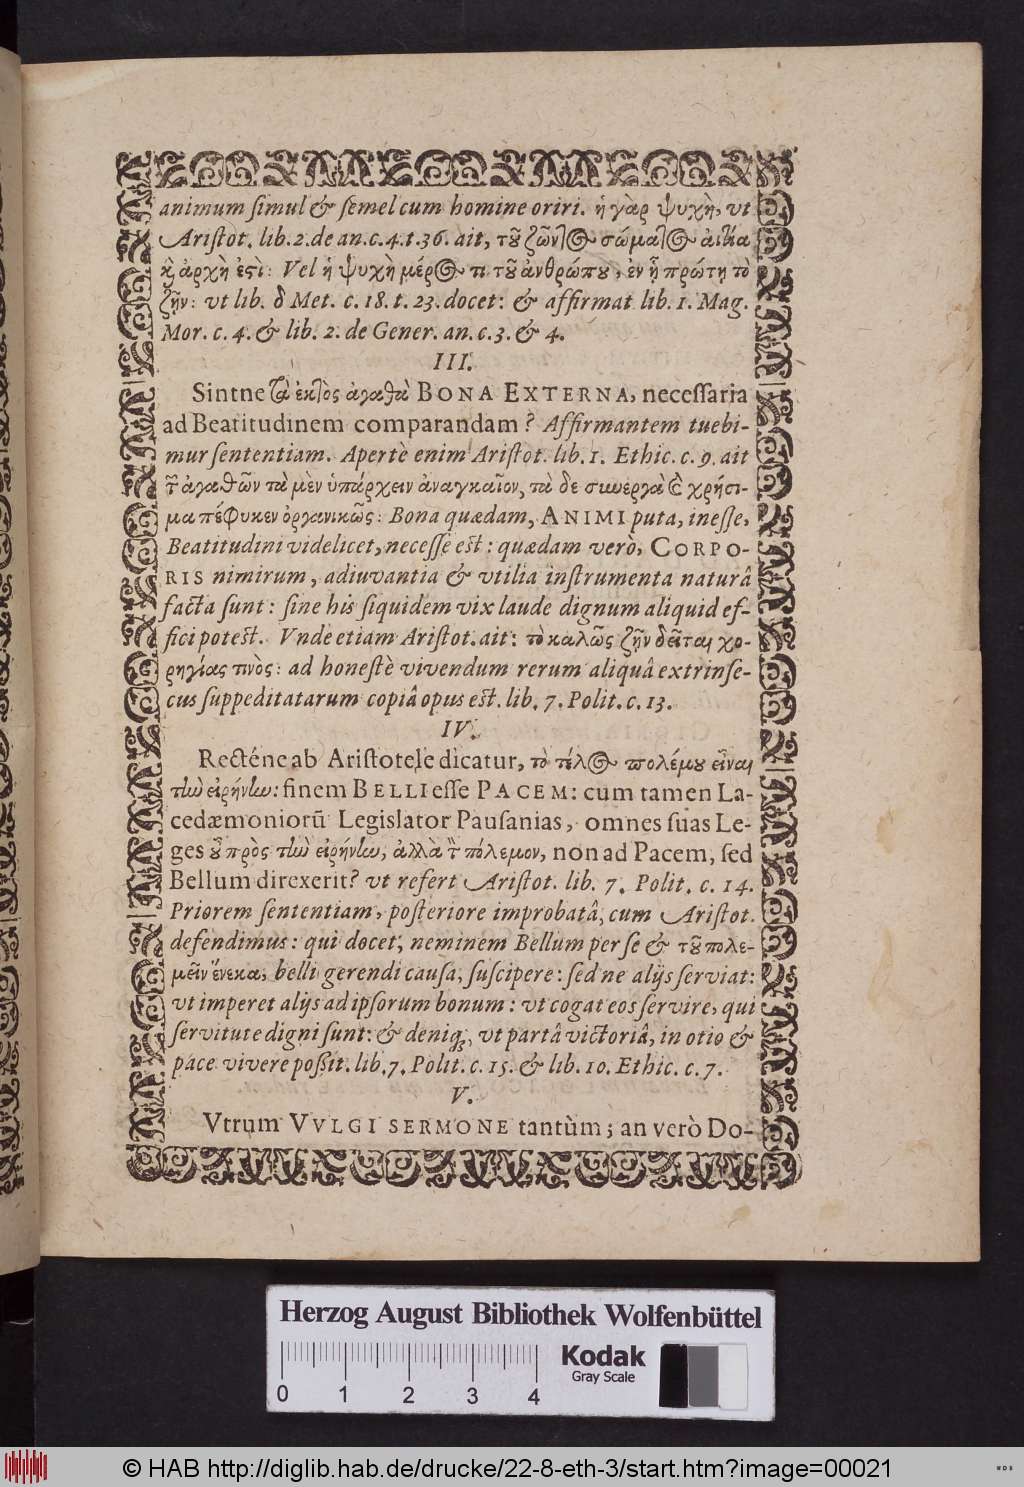 animum ſimul & ſemel cum homine oriri. ἡ γὰρ ψυχὴ, vt
Ariſtot. lib. 2. de an. c. 4. t. 36. ait, τοῦ ζῶντος σώματος αἰτία
καὶ ἀρχὴ ἐστὶ: Vel ἡ ψυχὴ μέρος τι τοῦ ἀνθρώπου, ἐν ᾗ πρώτῃ τὸ
ζῇν: vt lib. δ Met. c. 18. t. 23. docet: & affirmat lib. 1. Mag.
Mor. c. 4. & lib. 2. de Gener. an. c. 3. & 4.
III.
Sintne τὰ ἐκτὸς ἀγαθὰ BONA EXTERNA, neceſſaria
ad Beatitudinem comparandam? Affirmantem tuebi-
mur ſententiam. Apertè enim Ariſtot. lib. 1. Ethic. c. 9. ait
τῶν ἀγαθῶν τὰ μὲν ὑπάρχειν ἀναγκαῖον, τὰ δε συνεργὰ καὶ χρήσι-
μα πέφυκεν ὀργανικῶς: Bona quædam, ANIMI puta, ineſſe,
Beatitudini videlicet, neceſſe eſt: quædam verò, CORPO-
RIS nimirum, adiuvantia & vtilia inſtrumenta naturâ
facta ſunt: ſine his ſiquidem vix laude dignum aliquid ef-
fici poteſt. Vnde etiam Ariſtot. ait: τὸ καλῶς ζῇν δεῖται χο-
ρηγίας τινὸς: ad honeſtè vivendum rerum aliquâ extrinſe-
cus ſuppeditatarum copiâ opus eſt. lib. 7. Polit. c. 13.
IV.
Recténe ab Ariſtotele dicatur, τὸ τέλος πολέμου εἶναι
τὴν εἰρήνην: finem BELLI eſſe PACEM: cum tamen La-
cedæmoniorũ Legislator Pauſanias, omnes ſuas Le-
ges οὐ πρὸς τὴν εἰρήνην, ἀλλὰ τὸν πόλεμον, non ad Pacem, ſed
Bellum direxerit? vt refert Ariſtot. lib. 7. Polit. c. 14.
Priorem ſententiam, poſteriore improbatâ, cum Ariſtot.
defendimus: qui docet, neminem Bellum per ſe & τοῦ πολε-
μεῖν ἕνεκα, belli gerendi cauſa, ſuſcipere: ſed ne alijs ſerviat:
vt imperet alijs ad ipſorum bonum: vt cogat eos ſervire, qui
ſervitute digni ſunt: & deniq;, vt partâ victoriâ, in otio &
pace vivere poſſit. lib. 7. Polit. c. 15. & lib. 10. Ethic. c. 7.
V.
Vtrum VVLGI SERMONE tantùm; an verò Do-
Herzog August Bibliothek Wolfenbüttel
Kodak
Gray Scale
0 1 2 3 4
© HAB http://diglib.hab.de/drucke/22-8-eth-3/start.htm?image=00021